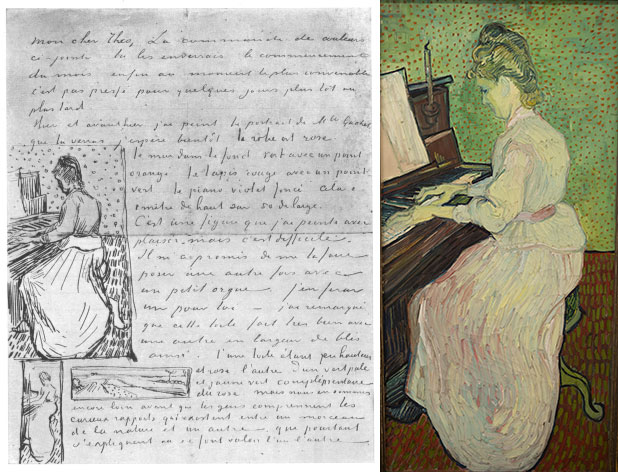 Mon cher Theo, La commande de couleurs
ci-jointe tu les enverrais le commencement
du mois enfin au moment le plus convenable
c'est pas pressé pour quelques jours plus tot ou
plus tard
Hier et avanthier j'ai peint le portrait de Mlle Gachet
que tu verras j'espère bientôt la robe est rose
le mur dans le fond vert avec un point
orangé le tapis rouge avec un point
vert le piano violet foncé cela a
mètre de haut sur 50 de large.
C'est une figure que j'ai peinte avec
plaisir – mais c'est difficile.
Il m'a promis de me la faire
poser une autre fois avec
un petit orgue. j'en ferai
un pour toi – j'ai remarqué
que cette toile fait très bien avec
une autre en largeur de blés
ainsi – l'une toile étant en hauteur
et rose l'autre d'un vert pale
et jaune vert complémentaire
du rose mais nous en sommes
encore loin avant que les gens comprennent les
curieux rapports qui existent entre un morceau
de la nature et un autre qui pourtant
s'expliquent et se font valoir l'un l'autre